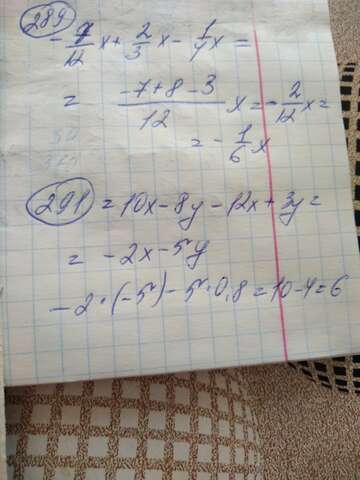 289
- 7/12 x + 2/3 x - 1/4 x =
= (-7 + 8 - 3)/12 x = - 2/12 x =
= - 1/6 x
291 = 10x - 8y - 12x + 3y =
= -2x - 5y
-2 · (-5) - 5 · 0,8 = 10 - 4 = 6